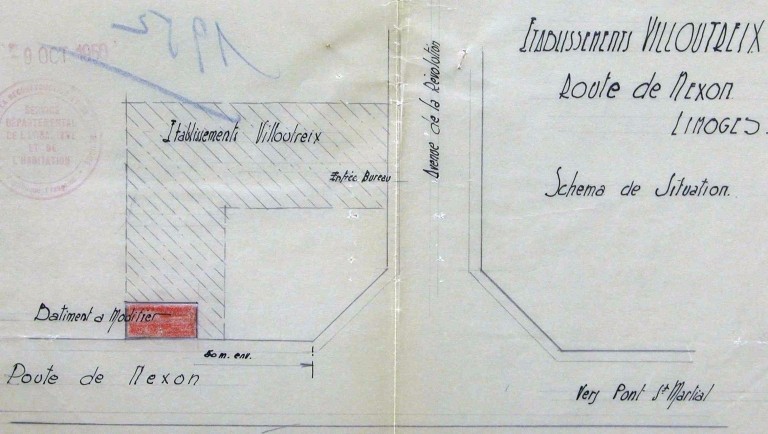 ETABLISSEMENTS VILLOUTREIX
Route de Nexon
LIMOGES.
Schema de Situation.
1952
- 9 OCT 1950
SERVICE
DÉPARTEMENTAL
ET DE
L'HABITATION
Etablissements Villoutreix
Entrée Bureau
Avenue de la Révolution
Batiment a Modifier
50 m. env.
Route de Nexon
Vers Pont St Martial